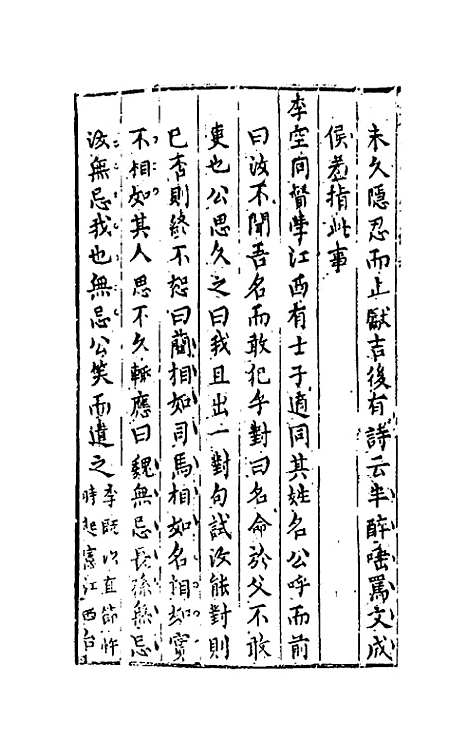 未久隱忍而止獻吉後有詩云半醉唾罵文成
侯盖指此事
李空同督學江西有士子適同其姓名公呼而前
曰汝不聞吾名而敢犯乎對曰名命於父不敢
更也公思久之曰我且出一對句試汝能對則
已否則終不恕曰藺相如司馬相如名相如實
不相如其人思不久輒應曰魏無忌長孫無忌
汝無忌我也無忌公笑而遣之李既以直節忤
時起憲江西台